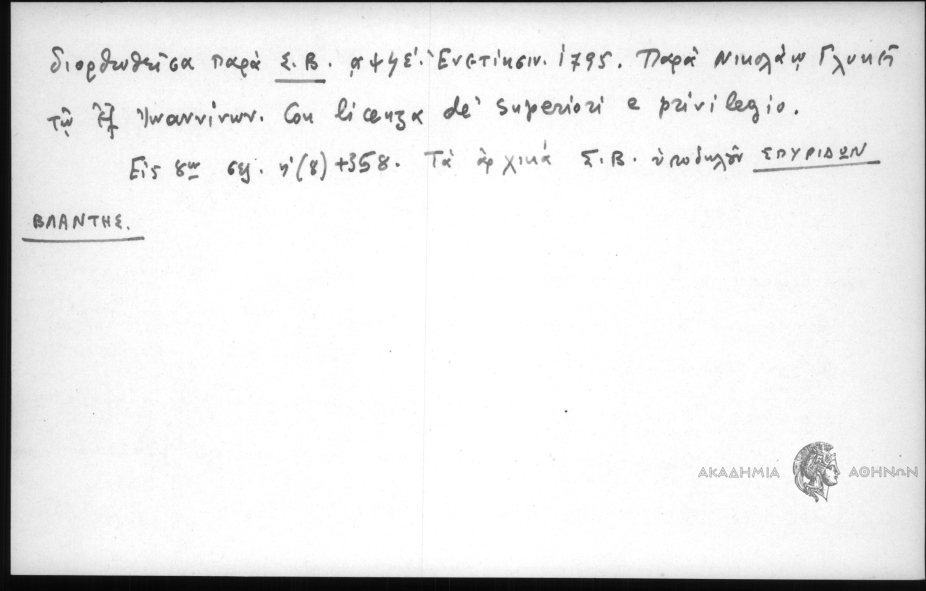 διορθωθεῖσα παρὰ Σ. Β. ͵αψϟέ. Ἐνετίησιν. 1795. Παρὰ Νικολάῳ Γλυκεῖ
τῷ ἐξ Ἰωαννίνων. Con licenza de' Superiori e privilegio.
Εἰς 8ον σσ. η'(8)+358. Τὰ ἀρχικὰ Σ. Β. ὑποδηλοῦν ΣΠΥΡΙΔΩΝ
ΒΛΑΝΤΗΣ.
ΑΚΑΔΗΜΙΑ ΑΘΗΝΩΝ